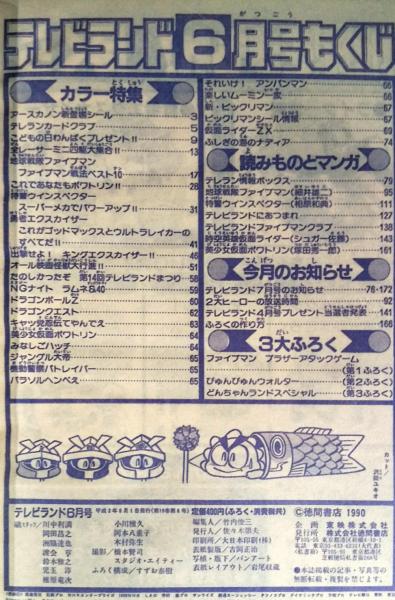 がつごう
テレビランド6月号もくじ
とくしゅう
カラー特集
アースカノン新登場シール 3
テレランカードクラブ 5
こどもの日わんぱくプレゼント!! 9
全レーサーミニ四駆大集合!! 13
地球戦隊ファイブマン
ファイブマン戦法ベスト10 17
これであなたもポワトリン!! 28
特警ウインスペクター
スーパーメカでパワーアップ!! 31
勇者エクスカイザー
これがゴッドマックスとウルトラレイカーの
すべてだ!! 41
出撃せよ! キングエクスカイザー!! 46
オール映画怪獣大行進!! 51
たのしかったぞ 第14回テレビランドまつり 56
NGナイト ラムネ&40 59
ドラゴンボールZ 60
ドラゴンクエスト 62
キャッ党忍伝てやんでえ 63
美少女仮面ポワトリン 64
みなしごハッチ 64
ジャングル大帝 65
機動警察パトレイバー 65
パラソルヘンべえ 65
それいけ! アンパンマン 66
楽しいムーミン一家 66
新・ビックリマン 67
ビックリマンシール情報 67
仮面ライダーZX 69
ふしぎの海のナディア 74
読みものとマンガ
テレラン情報ボックス 79
地球戦隊ファイブマン(細井雄二) 95
特警ウインスペクター(相原和典) 111
テレビランドにあつまれ 127
テレビランドファイブマンクラブ 138
時空英雄仮面ライダー(シュガー佐藤) 143
美少女仮面ポワトリン(塚田秀一郎) 161
こんげつ
今月のお知らせ
テレビランド7月号のお知らせ 76・172
2大ヒーローの放送時間 92
テレビランド4月号プレゼント当選者発表 141
ふろくの作り方 166
だい
3大ふろく
ファイブマン ブラザーアタックゲーム
(第1ふろく)
びゅんびゅんウォルター (第2ふろく)
どんちゃんランドスペシャル (第3ふろく)
カット/沢田ユキオ
テレビランド6月号
定価400円(ふろく・消費税共)
©徳間書店 1990
編集人/竹内俊三
印刷所/大日本印刷(株)
写植・版下/バンアート
表紙レイアウト/岩尾収蔵
企画 東映株式会社
発行所 株式会社徳間書店
●本誌掲載の記事・写真等の
無断転載・複製を禁じます。
撮影/橋本賢司
スタジオ・エイティー
ふろく構成/すずお泰樹